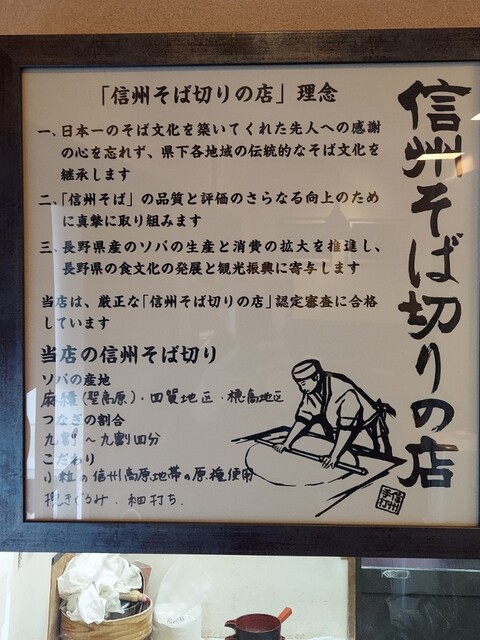 信州そば切りの店
「信州そば切りの店」理念
一、日本一のそば文化を築いてくれた先人への感謝
の心を忘れず、県下各地域の伝統的なそば文化を
継承します
二、「信州そば」の品質と評価のさらなる向上のため
に真摯に取り組みます
三、長野県産のソバの生産と消費の拡大を推進し、
長野県の食文化の発展と観光振興に寄与します
当店は、厳正な「信州そば切りの店」認定審査に合格
しています
当店の信州そば切り
ソバの産地
麻績(聖高原)・四賀地区・穂高地区
つなぎの割合
九割〜九割四分
こだわり
小粒の信州高原地帯の原種使用
挽きぐるみ . 細打ち.
信州
手打